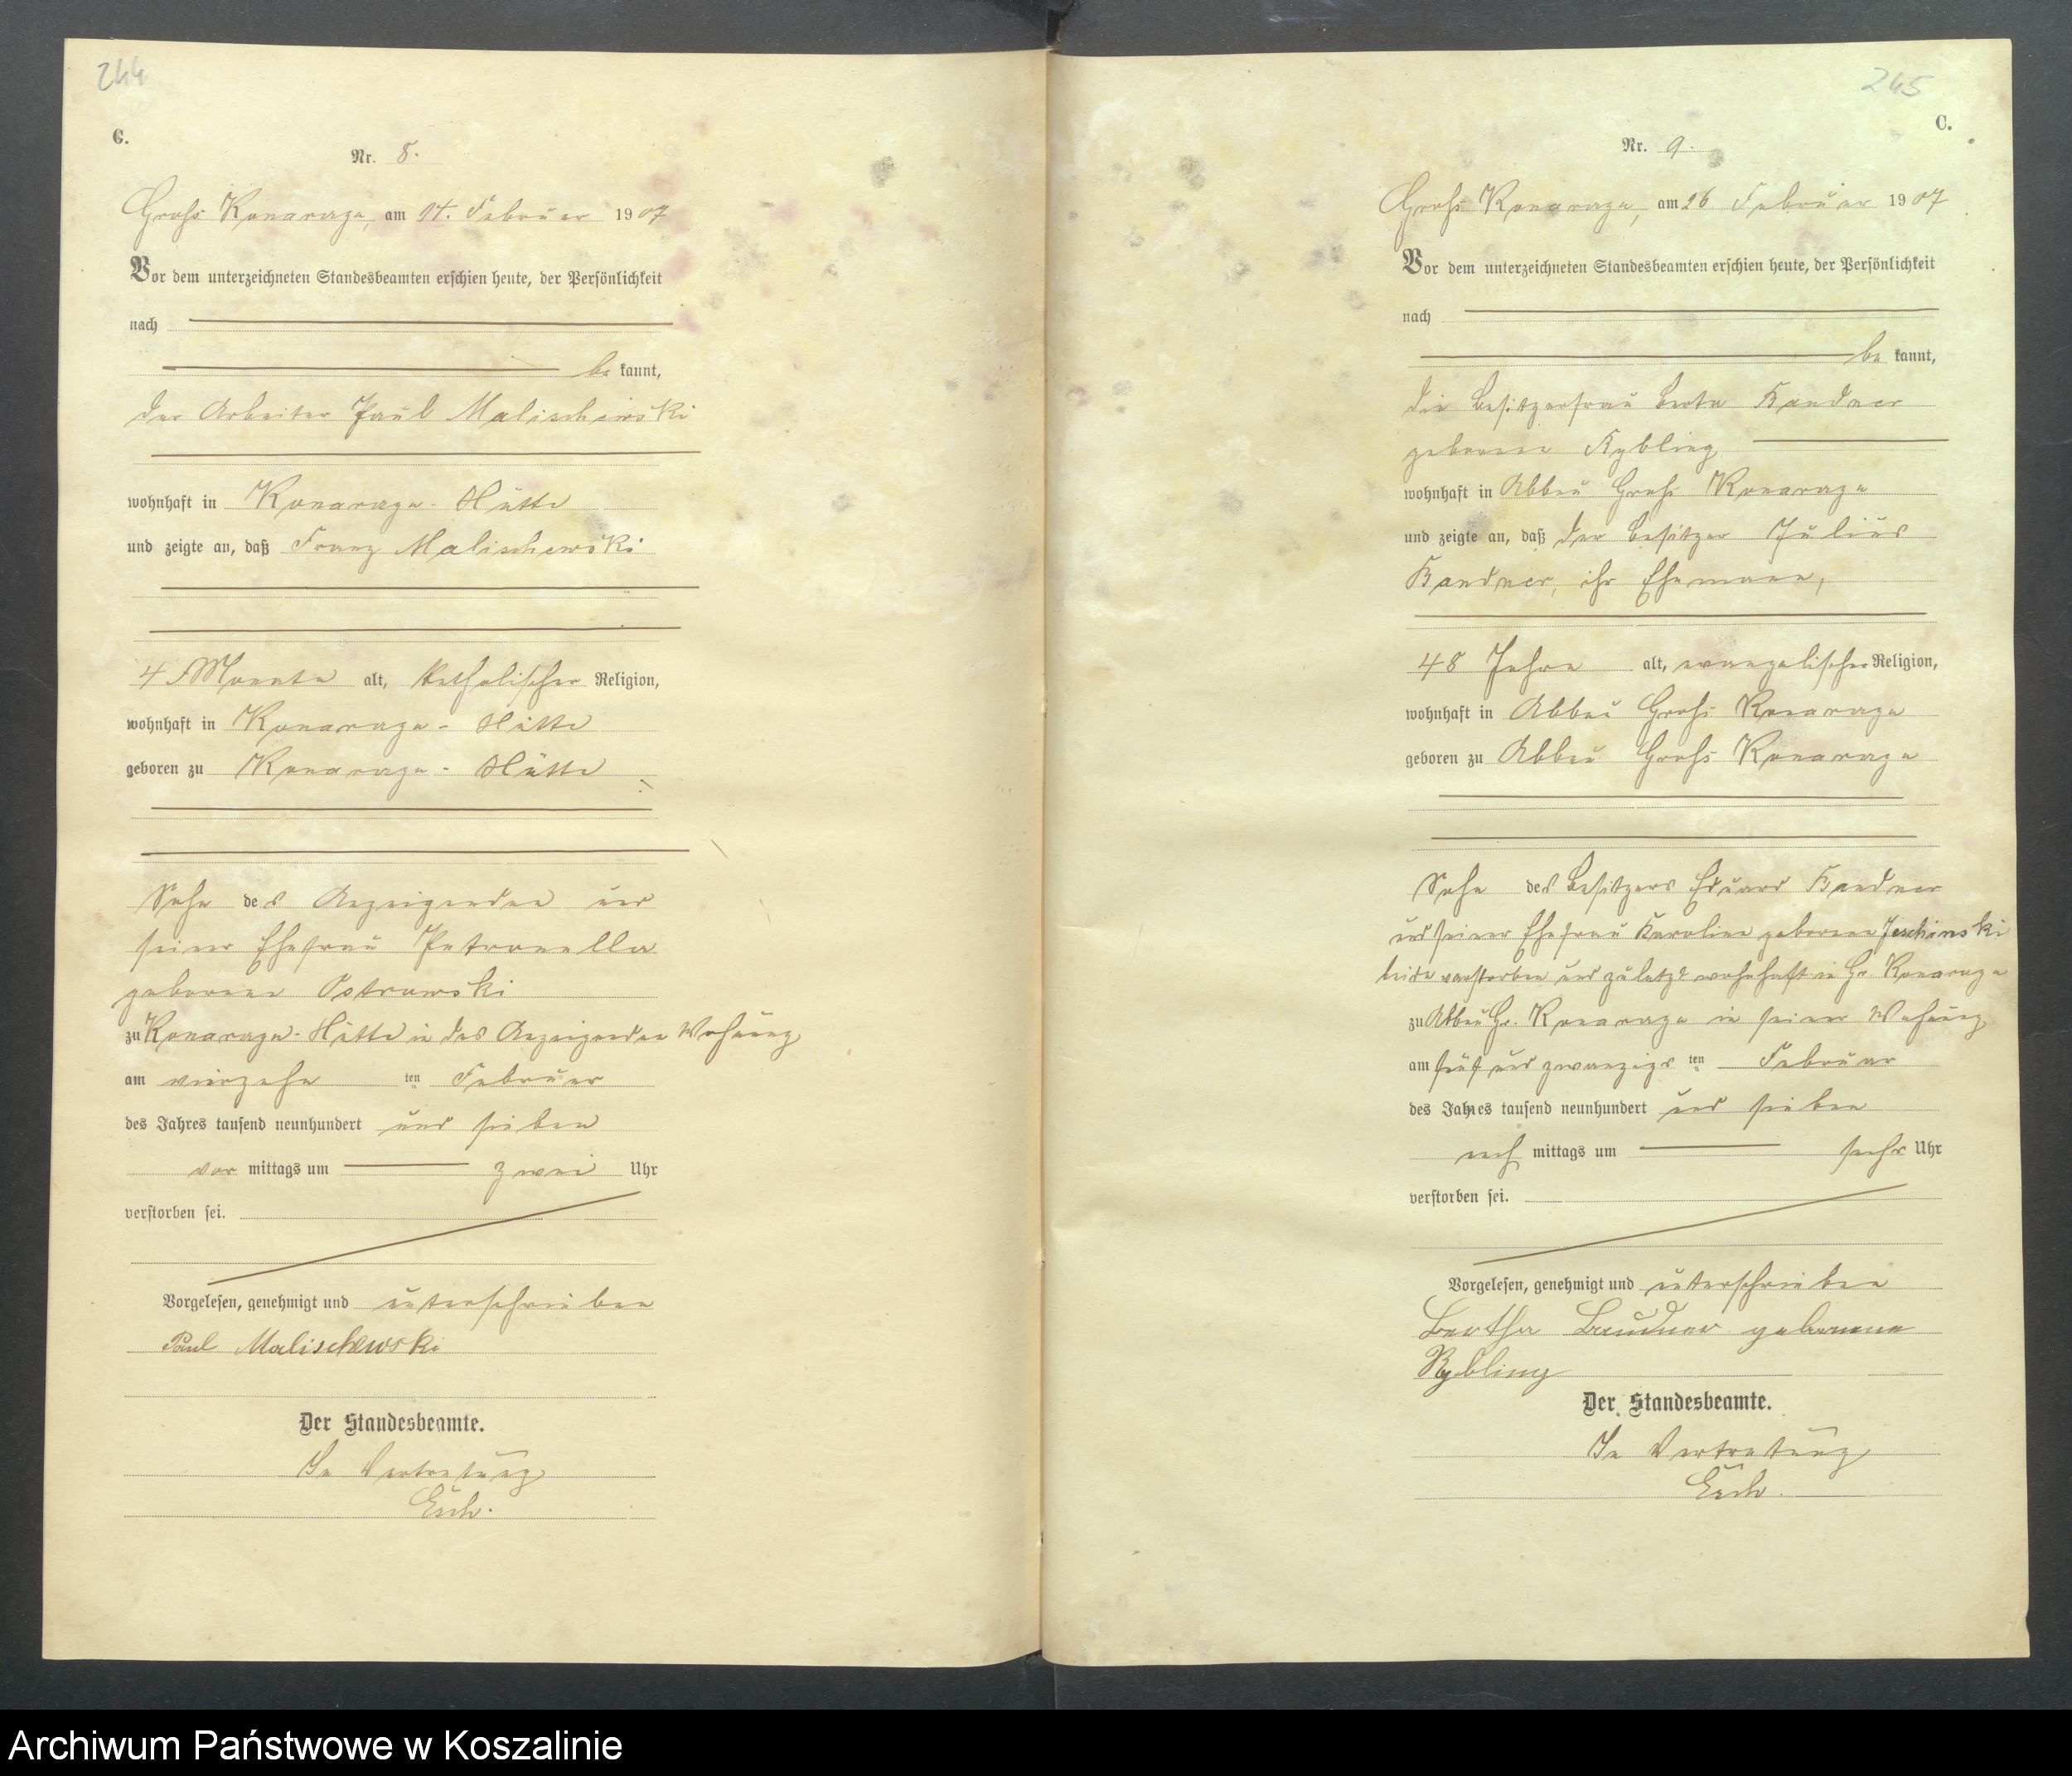 244
C.
Nr. 8.
Gross Konarzyn, am 14. Februar 1907
Vor dem unterzeichneten Standesbeamten erschien heute, der Persönlichkeit
nach
be kannt,
der Arbeiter Paul Malischewski
wohnhaft in Konarzyn-Hütte
und zeigte an, daß Franz Malischewski
4 Monate alt, katholischer Religion,
wohnhaft in Konarzyn-Hütte
geboren zu Konarzyn-Hütte
Sohn des Anzeigenden und
seiner Ehefrau Petronella
geborene Ostrowski
zu Konarzyn-Hütte in des Anzeigenden Wohnung
am vierzehn ten Februar
des Jahres tausend neunhundert und sieben
vor mittags um zwei Uhr
verstorben sei.
Vorgelesen, genehmigt und unterschrieben
Paul Malischewski
Der Standesbeamte.
In Vertretung
245
C.
Nr. 9.
Gross Konarzyn, am 26 Februar 1907
Vor dem unterzeichneten Standesbeamten erschien heute, der Persönlichkeit
nach
be kannt,
die Besitzerfrau Berta Bandner
geborene Rybling
wohnhaft in Abbau Gross Konarzyn
und zeigte an, daß der Besitzer Julius
Bandner, ihr Ehemann,
48 Jahre alt, evangelischer Religion,
wohnhaft in Abbau Gross Konarzyn
geboren zu Abbau Gross Konarzyn
Sohn des Besitzers Eduard Bandner
und seiner Ehefrau Karoline geborene Jeschinski
beide verstorben und zuletzt wohnhaft in Gr. Konarzyn
zu Abbau Gr. Konarzyn in seiner Wohnung
am fünf und zwanzigs ten Februar
des Jahres tausend neunhundert und sieben
nach mittags um sechs Uhr
verstorben sei.
Vorgelesen, genehmigt und unterschrieben
Bertha Bandner geborene
Rybling
Der Standesbeamte.
In Vertretung
Archiwum Państwowe w Koszalinie